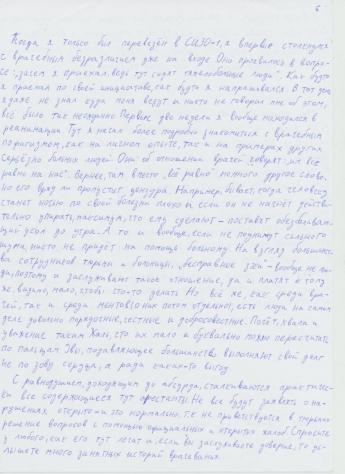 6
Когда я только был перевезён в СИЗО-1, я впервые столкнулся
с врачебным безразличием уже на входе. Оно проявилось в вопро-
се: „зачем я приехал, ведь тут сидят тяжелобольные люди". Как будто
я приехал по своей инициативе, как будто я напрашивался. В тот день
я даже не знал куда меня везут и никто не говорил мне об этом,
всё было так неожиданно. Первые две недели я вообще находился в
реанимации. Тут я начал более подробно знакомиться с врачебным
пофигизмом, как на личном опыте, так и на примерах других
серьёзно больных людей. Они об отношении врачей говорят „им всё
равно на нас". Вернее, там вместо „всё равно" немного другое слово,
но его вряд ли пропустит цензура. Например, бывает, когда человеку
станет ночью по своей болезни плохо и если он не начнёт действи-
тельно умирать, максимум, что ему сделают – поставят обезболиваю-
щий укол до утра. А то и вообще, если не поднимут сильного
шума, никто не придёт на помощь больному. На взгляд большинс-
ва сотрудников тюрьмы и больницы, „бесправные зэки" – вообще не лю-
ди, поэтому и заслуживают такое отношение, да и платят к тому
же, видимо, мало, чтобы что-то делать. Но всё же, как среди вра-
чей, так и среди ментов есть люди на самом
деле довольно порядочные, честные и добросовестные. Почёт, хвала и
уважение таким. Жаль, что их мало и буквально можно пересчитать
по пальцам. Увы, подавляющее большинство выполняют свой долг
не по зову сердца, а ради какой-то выгод.
С равнодушием, доходящим до абсурда, сталкиваются практичес-
ки все содержащиеся тут арестанты. Не все будут заявлять о на-
рушениях открыто и это нормально, т.к. не приветствуется в тюрьмах
решение вопросов с помощью официальных и открытых жалоб. Спросите
у любого, как его тут лечат и, если вы заслуживаете доверие, то ус-
лышите много занятных историй врачевания.